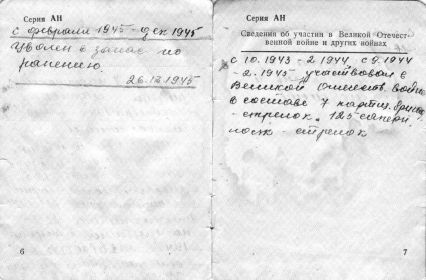 Серия АН
с февраля 1945 - дек 1945
Уволен в запас по
ранению
26.12.1945
6
Серия АН
Сведения об участии в Великой Отечест-
венной войне и других войнах
с 10.1943 - 2.1944 с 9.1944
- 2.1945 - участвовал в
Великой Отечеств. войне
в составе 7 партиз. бригады
- стрелок. 125 стрелк
полк - стрелок
7